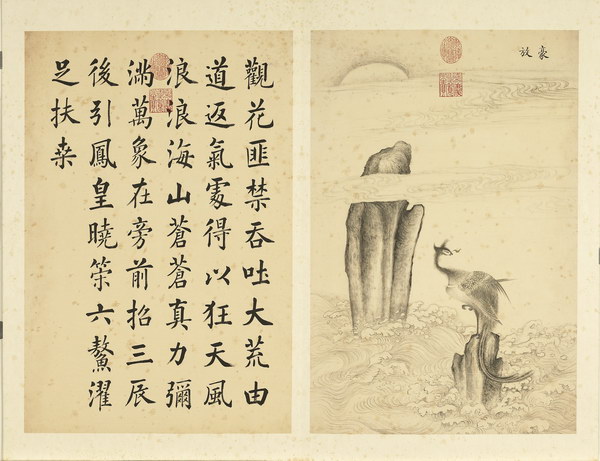 豪放
觀花匪禁吞吐大荒由
道返氣處得以狂天風
浪浪海山蒼蒼真力彌
滿萬象在旁前招三辰
後引鳳皇曉策六鰲濯
足扶桒